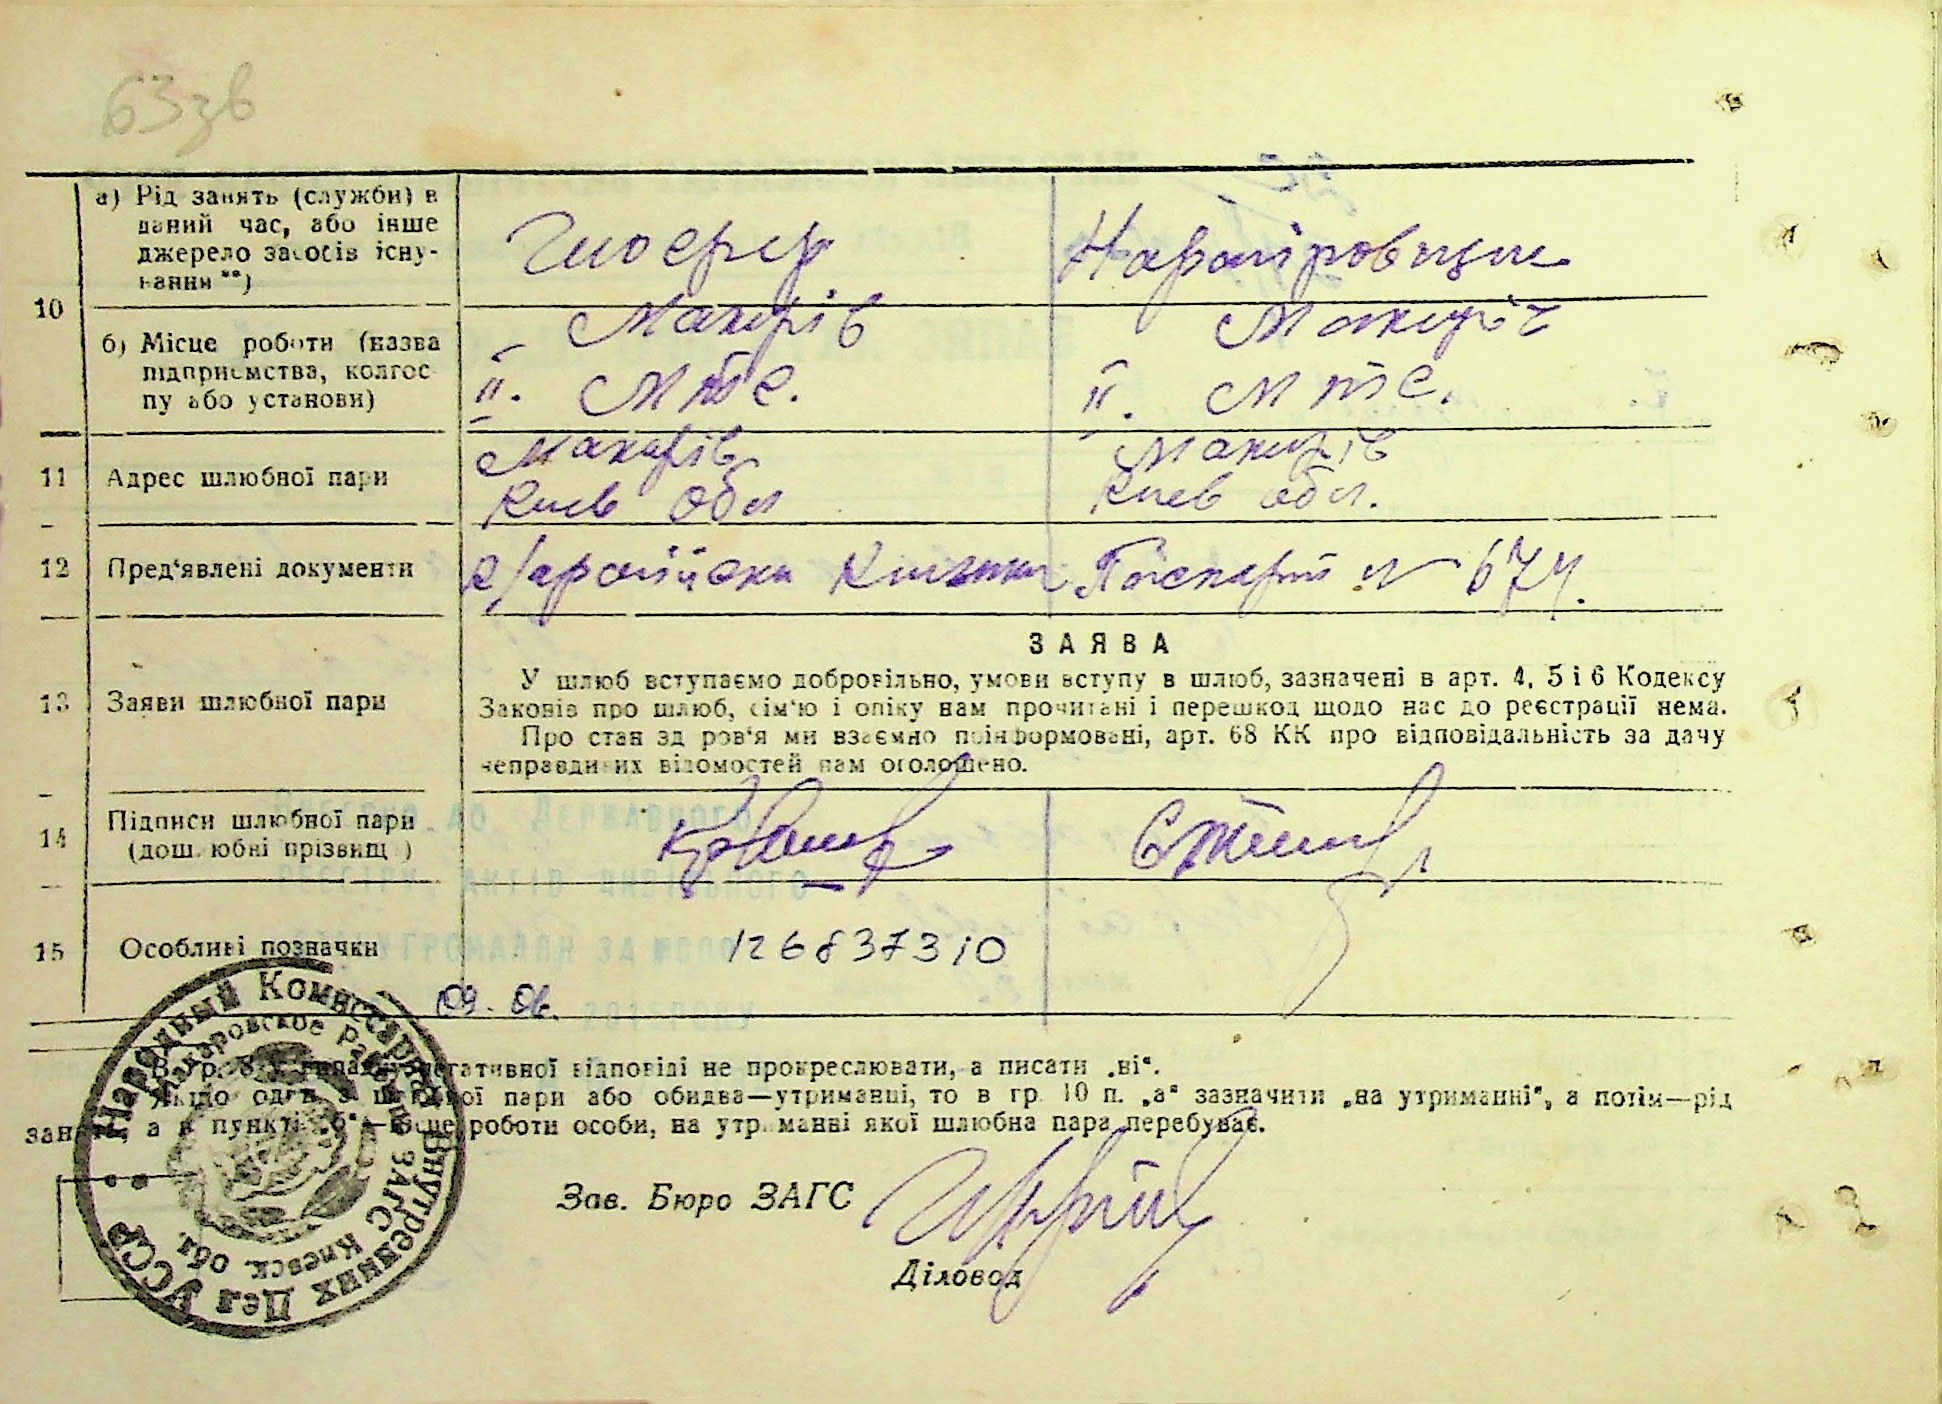 63зв
10
а) Рід занять (служби) в
даний час, або інше
джерело засобів існу-
вання**)
Шофер
б) Місце роботи (назва
підприємства, колгос-
пу або установи)
Макарів
Макарів
II. МТС.
II. МТС.
11
Адрес шлюбної пари
Макарів
Киев обл
Макарів
Киев обл.
12
Пред'явлені документи
Паспорт № 674.
13
Заяви шлюбної пари
ЗАЯВА
У шлюб вступаємо добровільно, умови вступу в шлюб, зазначені в арт. 4, 5 і 6 Кодексу
Законів про шлюб, сім'ю і опіку нам прочитані і перешкод щодо нас до реєстрації нема.
Про стан здоров'я ми взаємно поінформовані, арт. 68 КК про відповідальність за дачу
неправдивих відомостей нам оголошено.
14
Підписи шлюбної пари
(дошлюбні прізвища)
15
Особливі позначки
126837310
Народный Комиссариат Внутренних Дел УССР
Макаровское рай ЗАГС Киевск. обл.
негативної відповіді не прокреслювати, а писати „ні“.
Якщо один з шлюбної пари або обидва—утриманці, то в гр. 10 п. „а“ зазначити „на утриманні“, а потім—рід
занять, а в пункті „б“—місце роботи особи, на утриманні якої шлюбна пара перебуває.
Зав. Бюро ЗАГС
Діловод